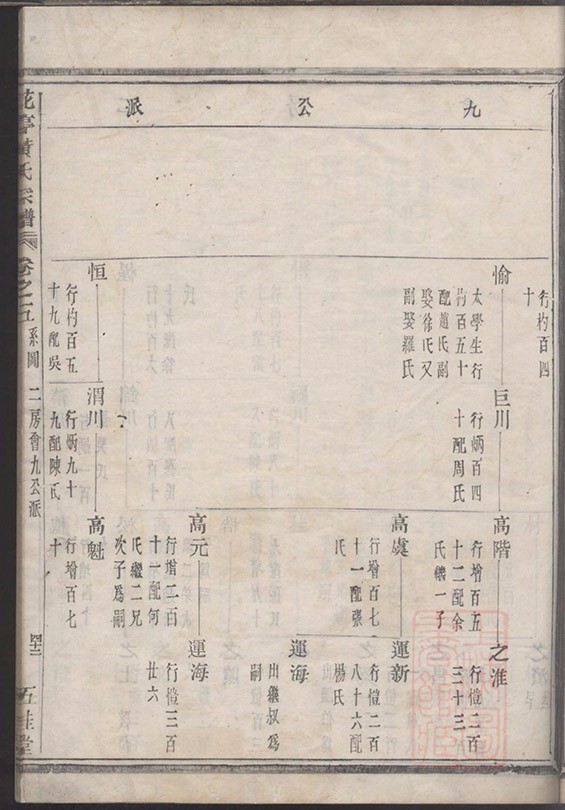 九公派
行杓百四
十
愉
太學生行
杓百五十
配趙氏副
娶徐氏又
副娶羅氏
巨川
行炳百四
十配周氏
高階
行增百五
十二配余
氏繼一子
之淮
行愷二百
三十三
高虞
行增百七
十一配張
氏
運新
行愷二百
八十六配
楊氏
運海
出繼叔爲
嗣
高元
行增二百
十一配何
氏繼二兄
次子爲嗣
運海
行愷三百
廿六
恒
行杓百五
十九配吳
氏
渭川
行炳九十
九配陳氏
高魁
行增百七
十
花亭黃氏宗譜
卷之五
系圖
二房會九公派
四十三
五桂堂